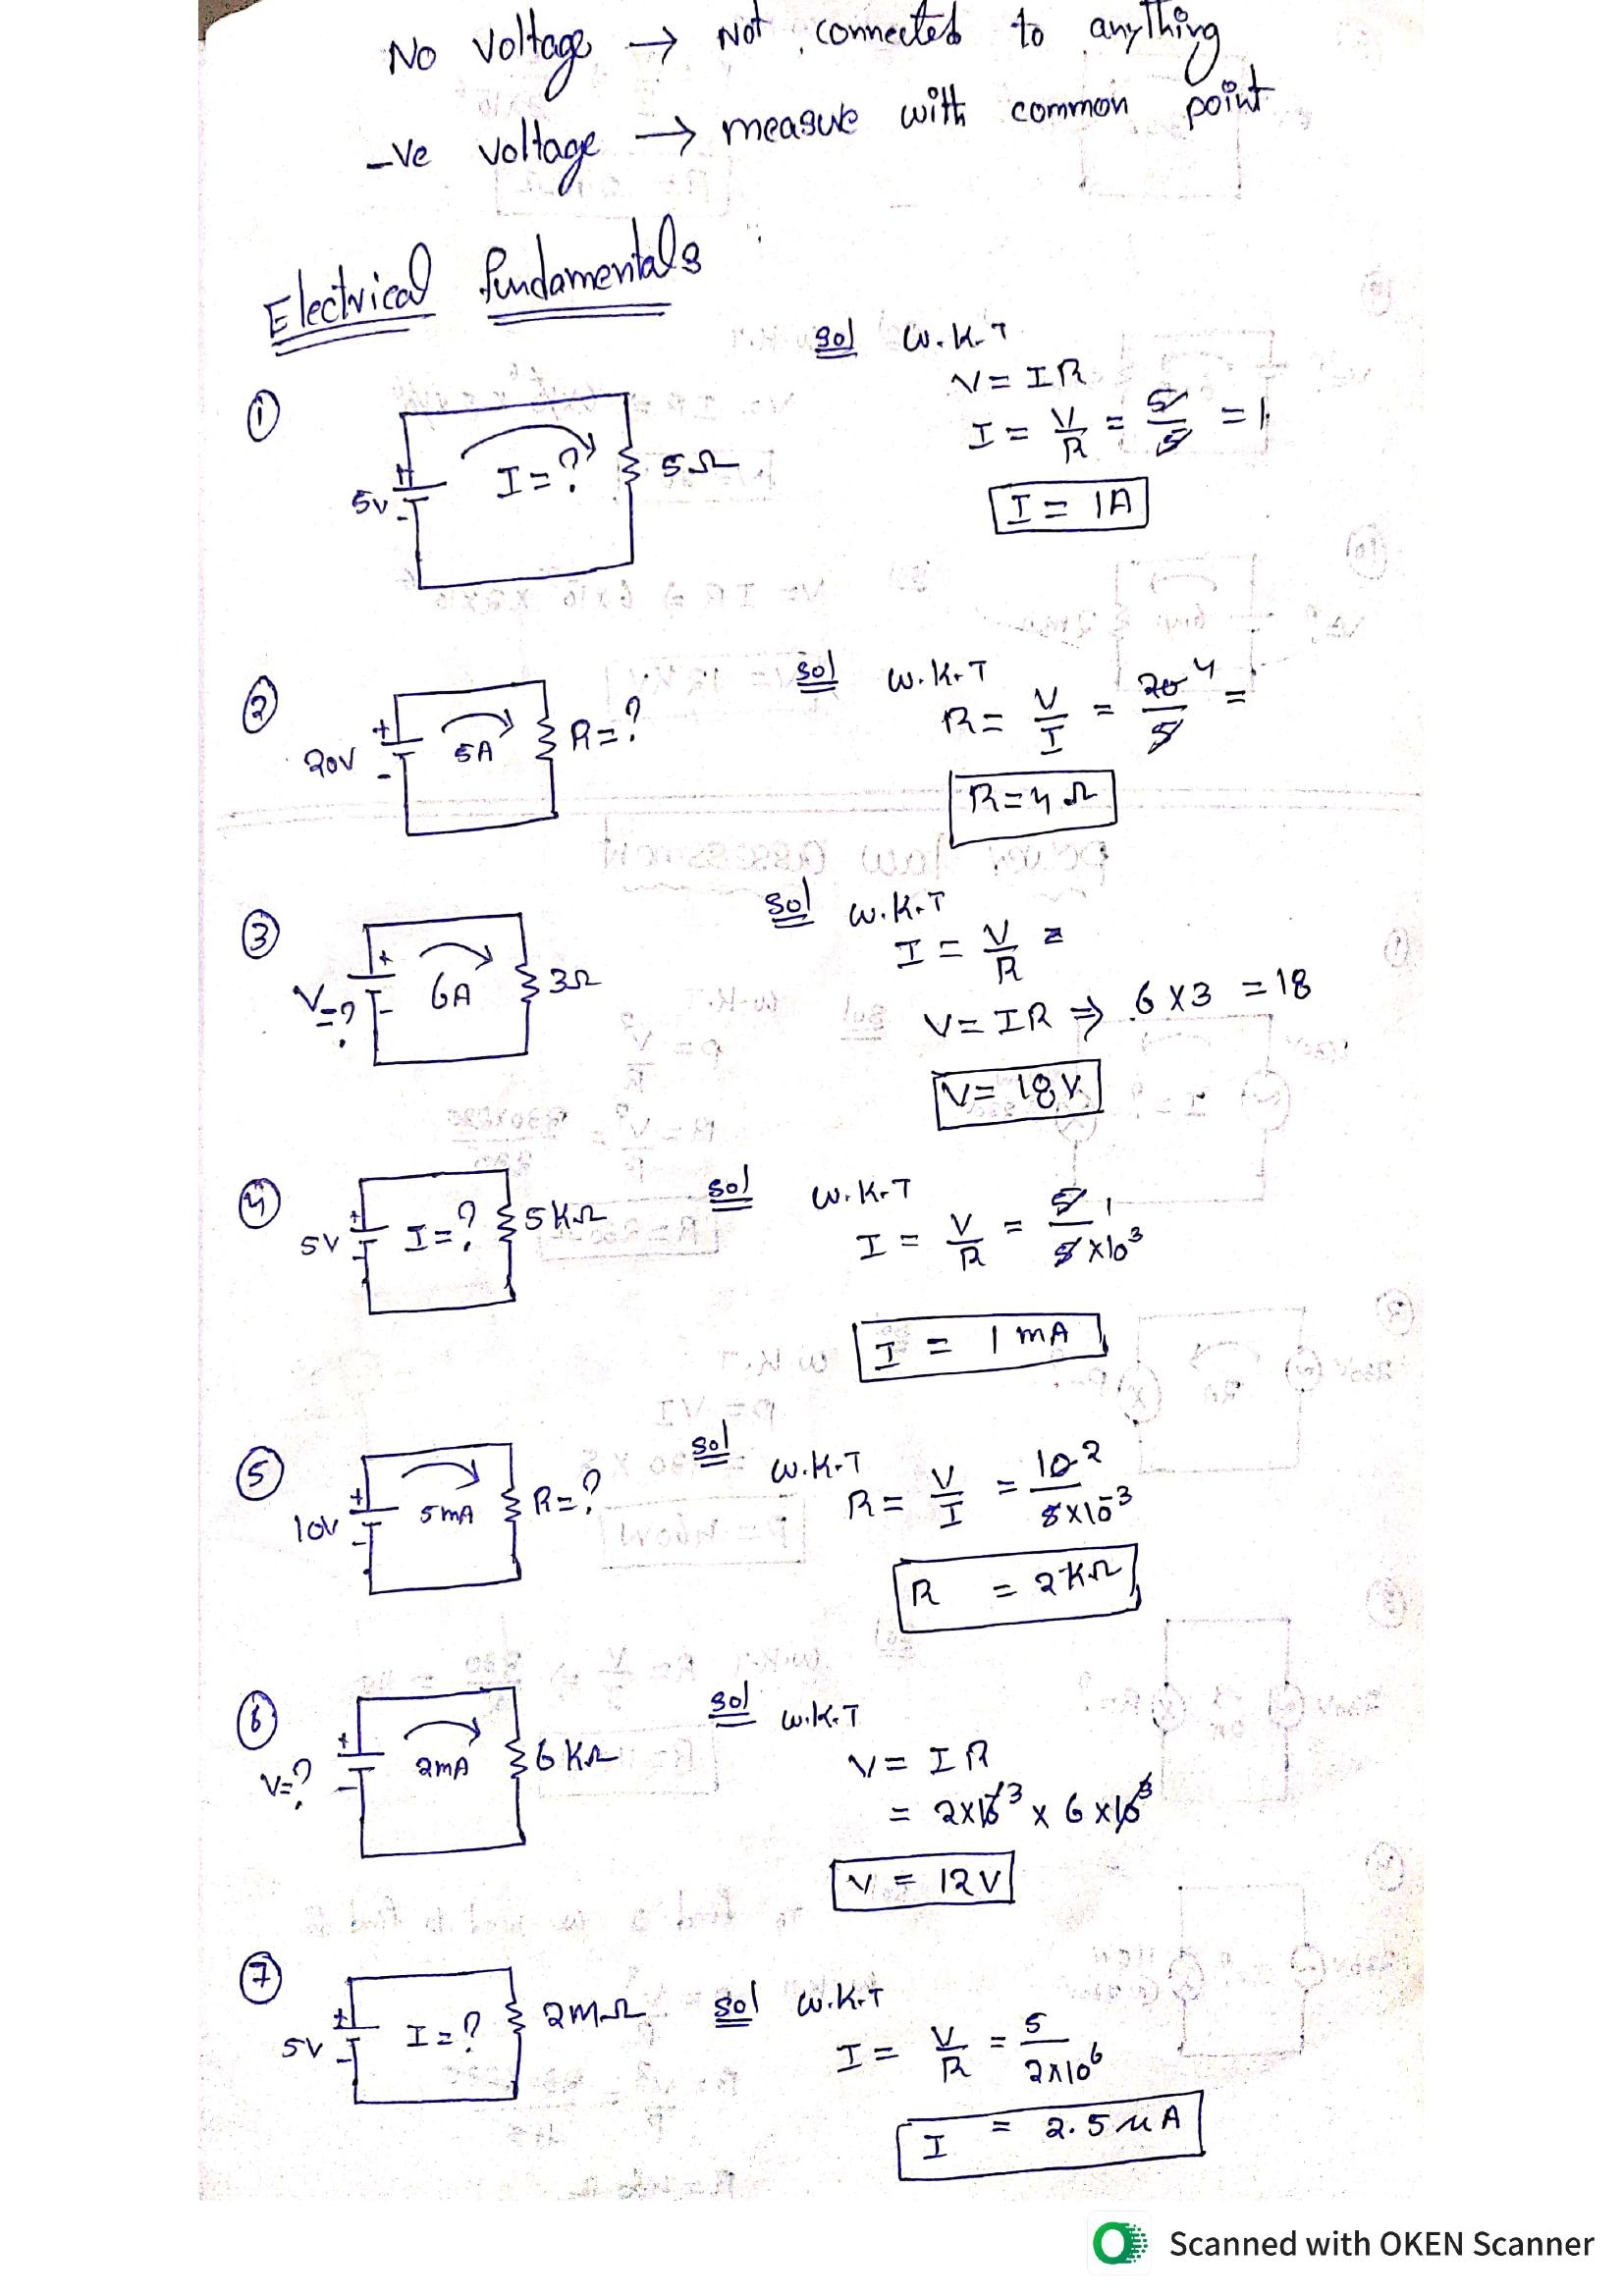 No voltage → Not connected to anything
-Ve voltage → measure with common point
Electrical fundamentals
① 5v + - I = ? 5Ω
sol W.K.T
V = IR
I = V/R = 5/5 = 1
I = 1A
② 20V + - 5A R = ?
sol W.K.T
R = V/I = 20/5 4 =
R = 4Ω
③ V = ? + - 6A 3Ω
sol W.K.T
I = V/R =
V = IR ⇒ 6 x 3 = 18
V = 18V
④ 5V + - I = ? 5KΩ
sol W.K.T
I = V/R = 5/5 x 10³ 1
I = 1 mA
⑤ 10V + - 5mA R = ?
sol W.K.T
R = V/I = 10/5x10⁻³ 2
R = 2KΩ
⑥ V = ? + - 2mA 6KΩ
sol W.K.T
V = IR
= 2x10⁻³ x 6 x10³
V = 12V
⑦ 5V + - I = ? 2MΩ
sol W.K.T
I = V/R = 5/2x10⁶
I = 2.5 uA
Scanned with OKEN Scanner